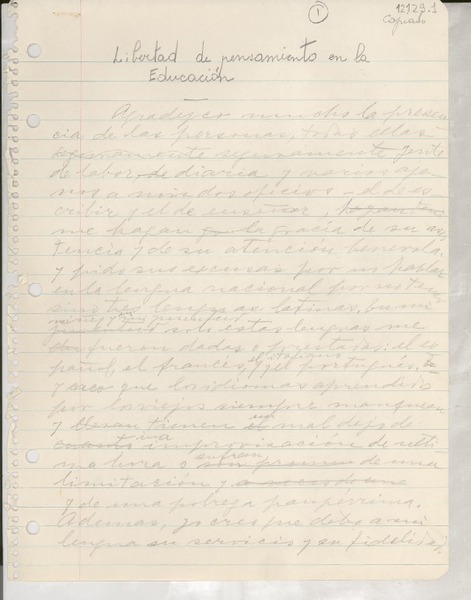 1
12129.1
Copiado
Libertad de pensamiento en la
Educación
Agradezco mucho la presen-
cia de las personas, todas ellas
seguramente gente
de labor de diaria y varios aje-
nos a mis dos oficios - el de es-
cribir y el de enseñar
me hagan la gracia de su asis-
tencia y de su atención benévola
y pido sus excusas por no hablar
en la lengua nacional por no tener
sino tres lenguas latinas. En mi
solo estas lenguas me
fueron dadas o prestadas: el es-
pañol, el francés, el italiano y el portugués.
y creo que los idiomas aprendidos
por los viejos siempre manquean
y tienen mal dejo de
una improvisación de últi-
ma hora o sufren de una
limitación y
y de una pobreza paupérrima.
Además, yo creo que debo a mi
lengua su servicio y su fidelidad